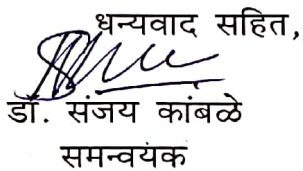 धन्यवाद सहित,
डॉ. संजय कांबळे
समन्वयक